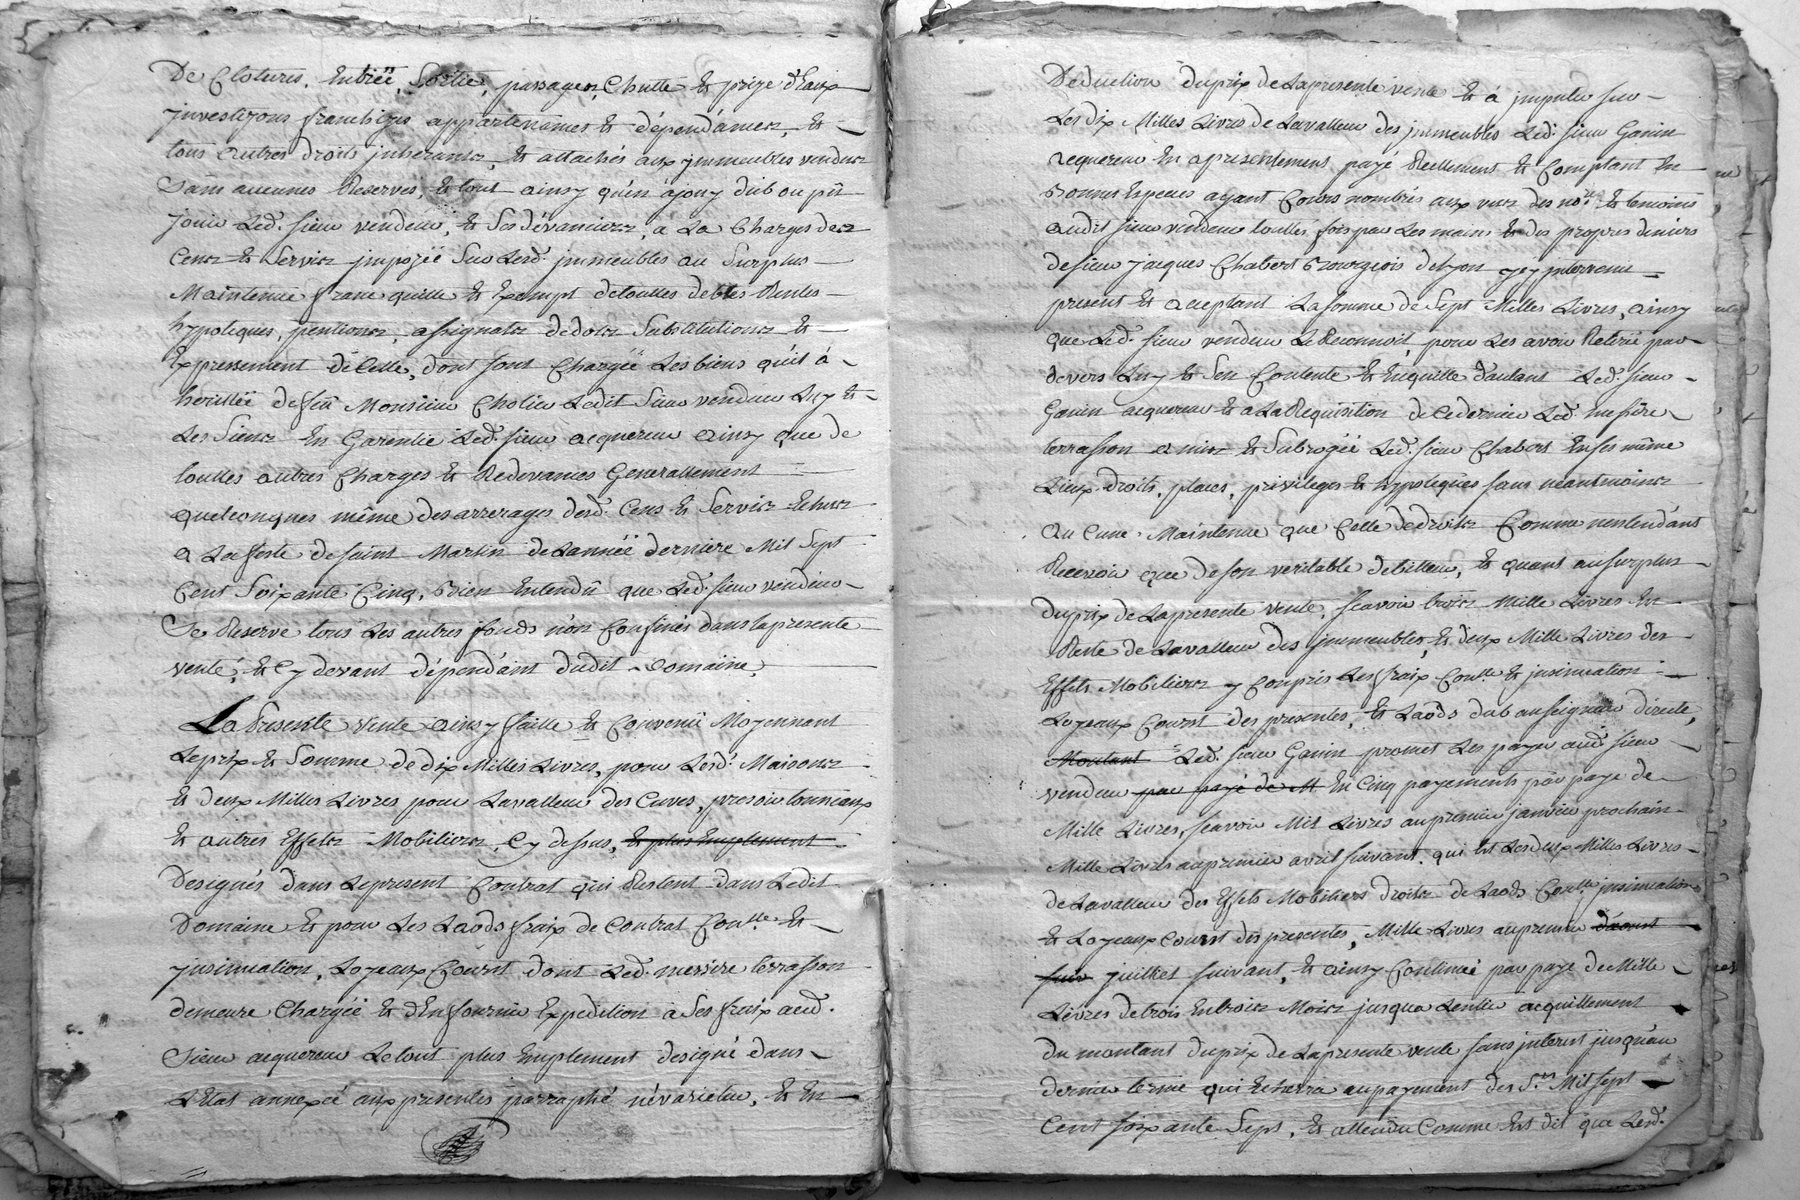 De Clotures, Entréë, Sortie, passages, Chutte & prize d'Eaux
jnvestizons franchizes appartenances & dépendances, &
tous autres droits jnherants, & attachés aux ymmeubles vendus
Sans aucunes Reserves, & tout ainsy qu'en a jouy dub ou pû
jouir Led. sieur vendeur, & Ses dévanciers, a La Charges des
Cens & Servis jmpozéë Sur Lesd. jmmeubles au Surplus
Maintenue franc quitte & Exempt de touttes debtes Rentes
hypoteques, pentions, assignats de dots Substitutions &
Expressement de Celle, dont sont Chargéë Les biens qu'il á
herittéë de feû Monsieur Cholier Ledit Sieur vendeur Luy &
Les Siens En Garentie Led. sieur acquereur ainsy que de
touttes autres Charges & Redevances Generallement
quelconques même des arrerages desd. Cens & Servis Echus
a La feste de saint Martin de Lannéë derniere Mil Sept
Cent Soixante Cinq, Bien Entendû que Led. sieur vendeur
Se Reserve tous Les autres fonds nón Confinés dans la presente
vente, & Cy devant dépendant dudit Domaine,
La Presente vente ainsy faitte & Convenuë Moyennant
Le prix & Somme de dix Milles Livres, pour Lesd. Maisons
& deux Milles Livres pour La valleur des Cuves, pressoir tonneaux
& autres Effets Mobiliers, Cy dessus, & plus Emplement
Designés dans Le present Contrat qui Restent dans Ledit
Domaine & pour Les Laods fraix de Contrat Con.lle &
jnsinuation, Loyeaux Courst dont Led. messire terrasson
demeure Chargéë & d'En fournir Expedition à Ses fraix aud.
Sieur acquereur Le tout plus Emplement designé dans
L'Etat annexéé aux presentes parraphé névarietur, & En
Déduction du prix de La presente vente & á jmputer sur
Les dix Milles Livres de La valleur des jmmeubles Led. sieur Ganin
acquereur En a presentement payé Reellement & Comptant En
Bonnes Especes ayant Cours nombrés aux vues des no.re & temoins
audit sieur vendeur touttes fois par Les mains & des propres deniers
de sieur jacques Chabert Bourgeois de Lyon jcy jntervenu
present & acceptant La somme de Sept Milles Livres, ainsy
que Led. sieur vendeur Le Reconnoit pour Les avoir Retiréé par
devers Luy & S'en Contente & En quitte d'autant Led. sieur
Ganin acquereur & a La Requisition de Ce dernier Led. messire
terrasson a mis & Subrogéë Led. sieur Chabert En ses même
Lieux droits, places, privileges & hypoteques sans néantmoins
au Cune Maintenue que Celle de droits Comme n'entend'ant
Recevoir que de son veritable debitteur, & quant au surplus
du prix de La presente vente, sçavoir trois Mille Livres En
Reste de La valleur des jmmeubles, & deux Mille Livres des
Effets Mobiliers y Compris Les fraix Con.lle & jnsinuation
Loyeaux Courst des presentes, & Laods dub au seigneur direct,
Montant Led. sieur Ganin promet Les payer aud. sieur
vendeur par payé de M En Cinq payements par paye de
Mille Livres, sçavoir Mil Livres au premier janvier prochain
Mille Livres au premier avril suivant, qui Est Les deux Milles Livres
de La valleur des Effets Mobiliers droits de Laods Con.lle jnsinuation
& Loyeaux Courst des presentes, Mille Livres au premier d'aoust
suiv juilliet suivant, & ainsy Continuer par paye de Mille
Livres de trois En trois Mois jusqua L'entier acquittement
du montant du prix de La presente vente sans jnterest jusquau
dernier terme qui Echerra au payement des S.ts Mil sept
Cent soixante Sept, & attendu Comme Est dit que Led.